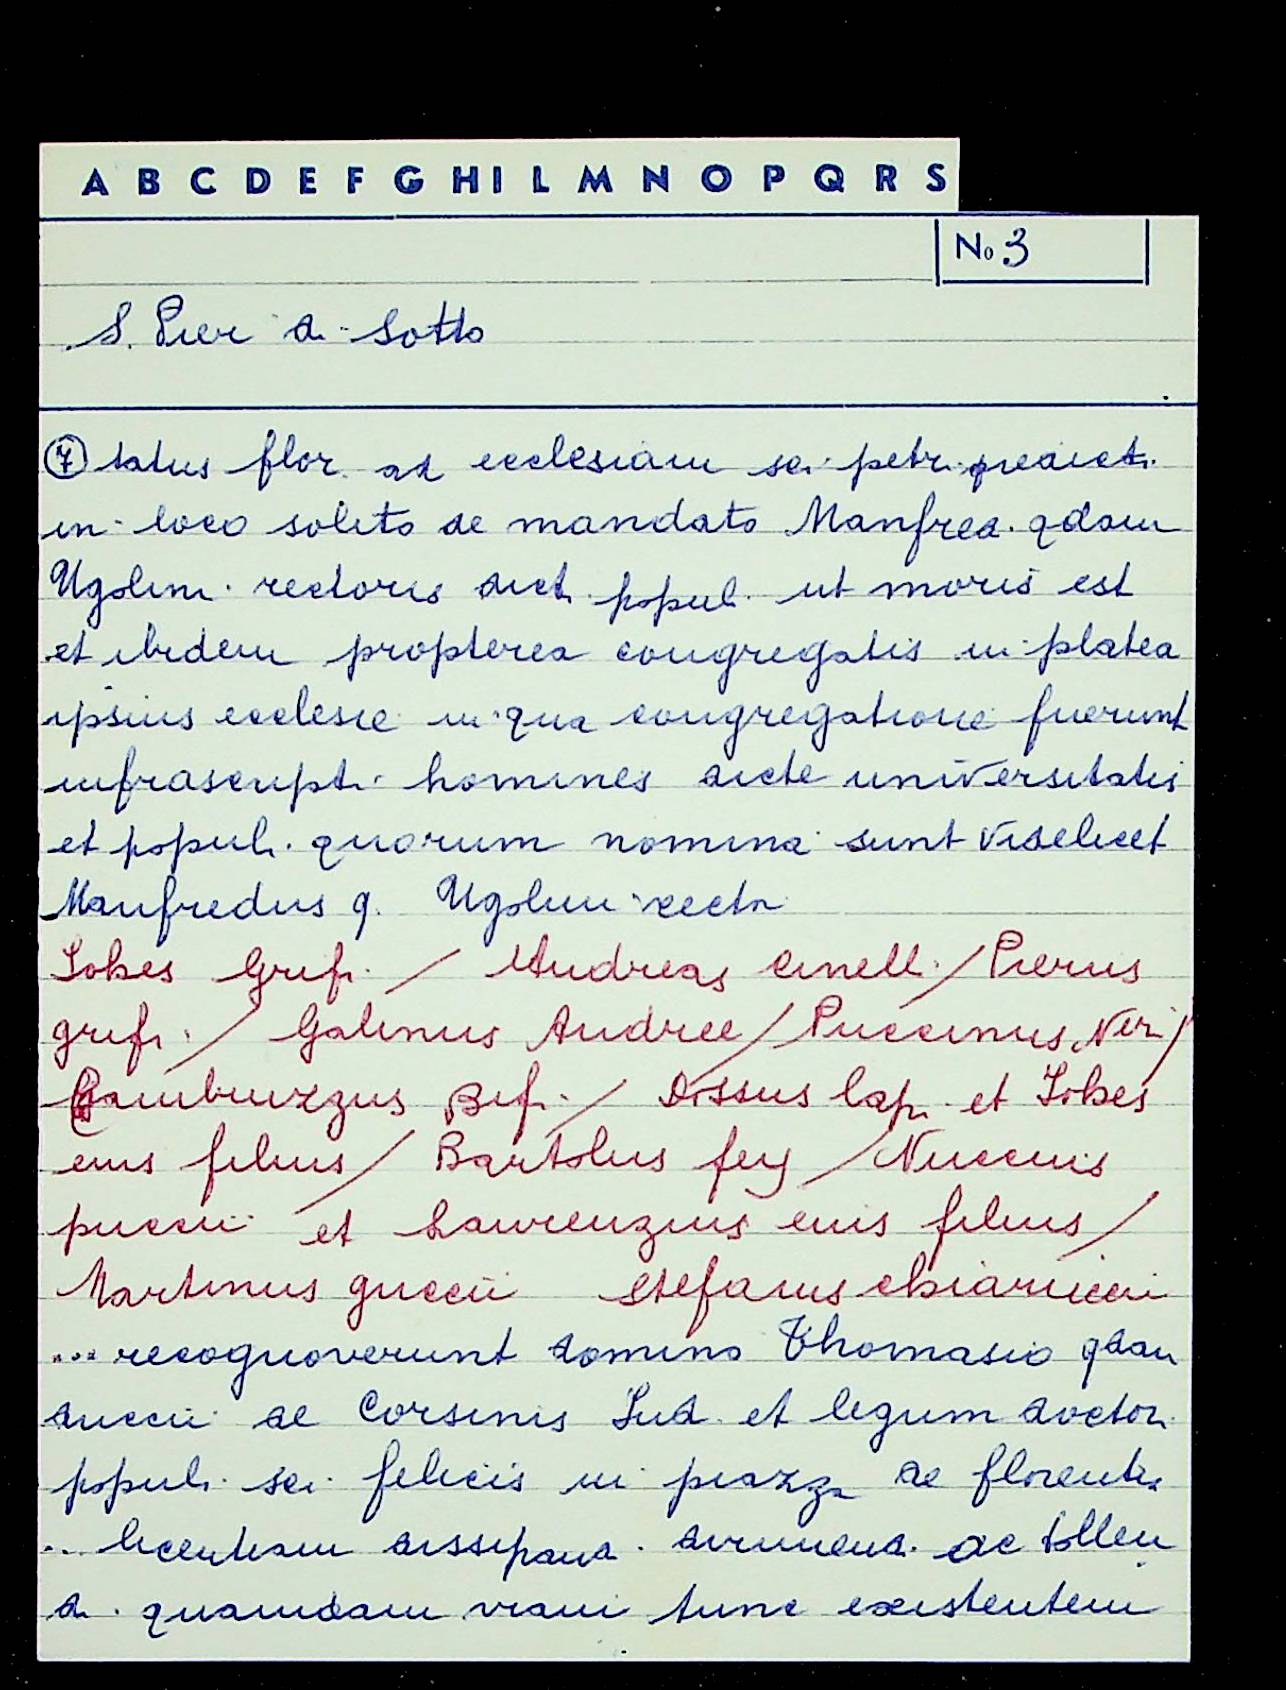 A B C D E F G H I L M N O P Q R S
No 3
S. Pier di Sotto
⑦ tatus flor. ad ecclesiam sci petri predicti
in loco solito de mandato Manfred. qdam
Ugolini rectoris dict. populi ut moris est
et ibidem propterea congregatis in platea
ipsius ecclesie in qua congregatione fuerunt
infrascripti homines dicte universitatis
et populi quorum nomina sunt videlicet
Manfredus q. Ugolini rector
Johes Grifi / Andreas Cinelli / Pierus
grifi / Galinus Andree / Puccinus Neri /
Bifi / Dossus lapi et Johes
eius filius / Bartolus fey / Nuccius
puccii et Laurenzius eius filius /
Martinus guccii Stefanus chiariccii
... recognoverunt domino Thomasio qdam
duccii de Corsinis Jud. et legum doctori
populi sci felicis in piazza de florentia
... licentiam dissipand. diruend. ac tollen
di quamdam viam tunc existentem